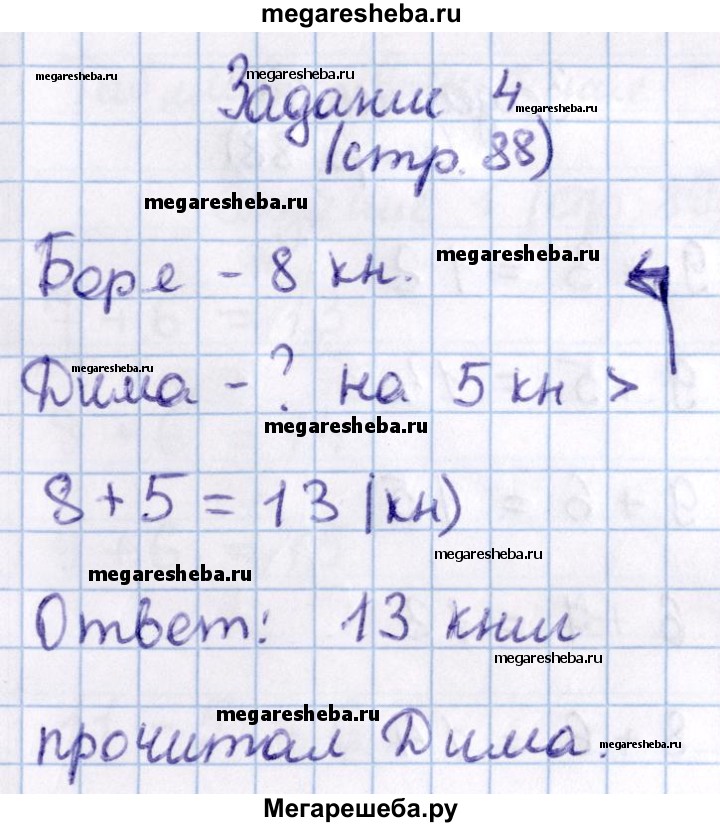 megaresheba.ru
megaresheba.ru megaresheba.ru
Задание 4 megaresheba.ru
(стр. 88)
megaresheba.ru
Боря - 8 кн. megaresheba.ru
megaresheba.ru
Дима - ? на 5 кн >
megaresheba.ru
8 + 5 = 13 (кн)
megaresheba.ru
megaresheba.ru
Ответ: 13 книг
megaresheba.ru
megaresheba.ru
прочитал Дима. megaresheba.ru
Мегарешеба.ру